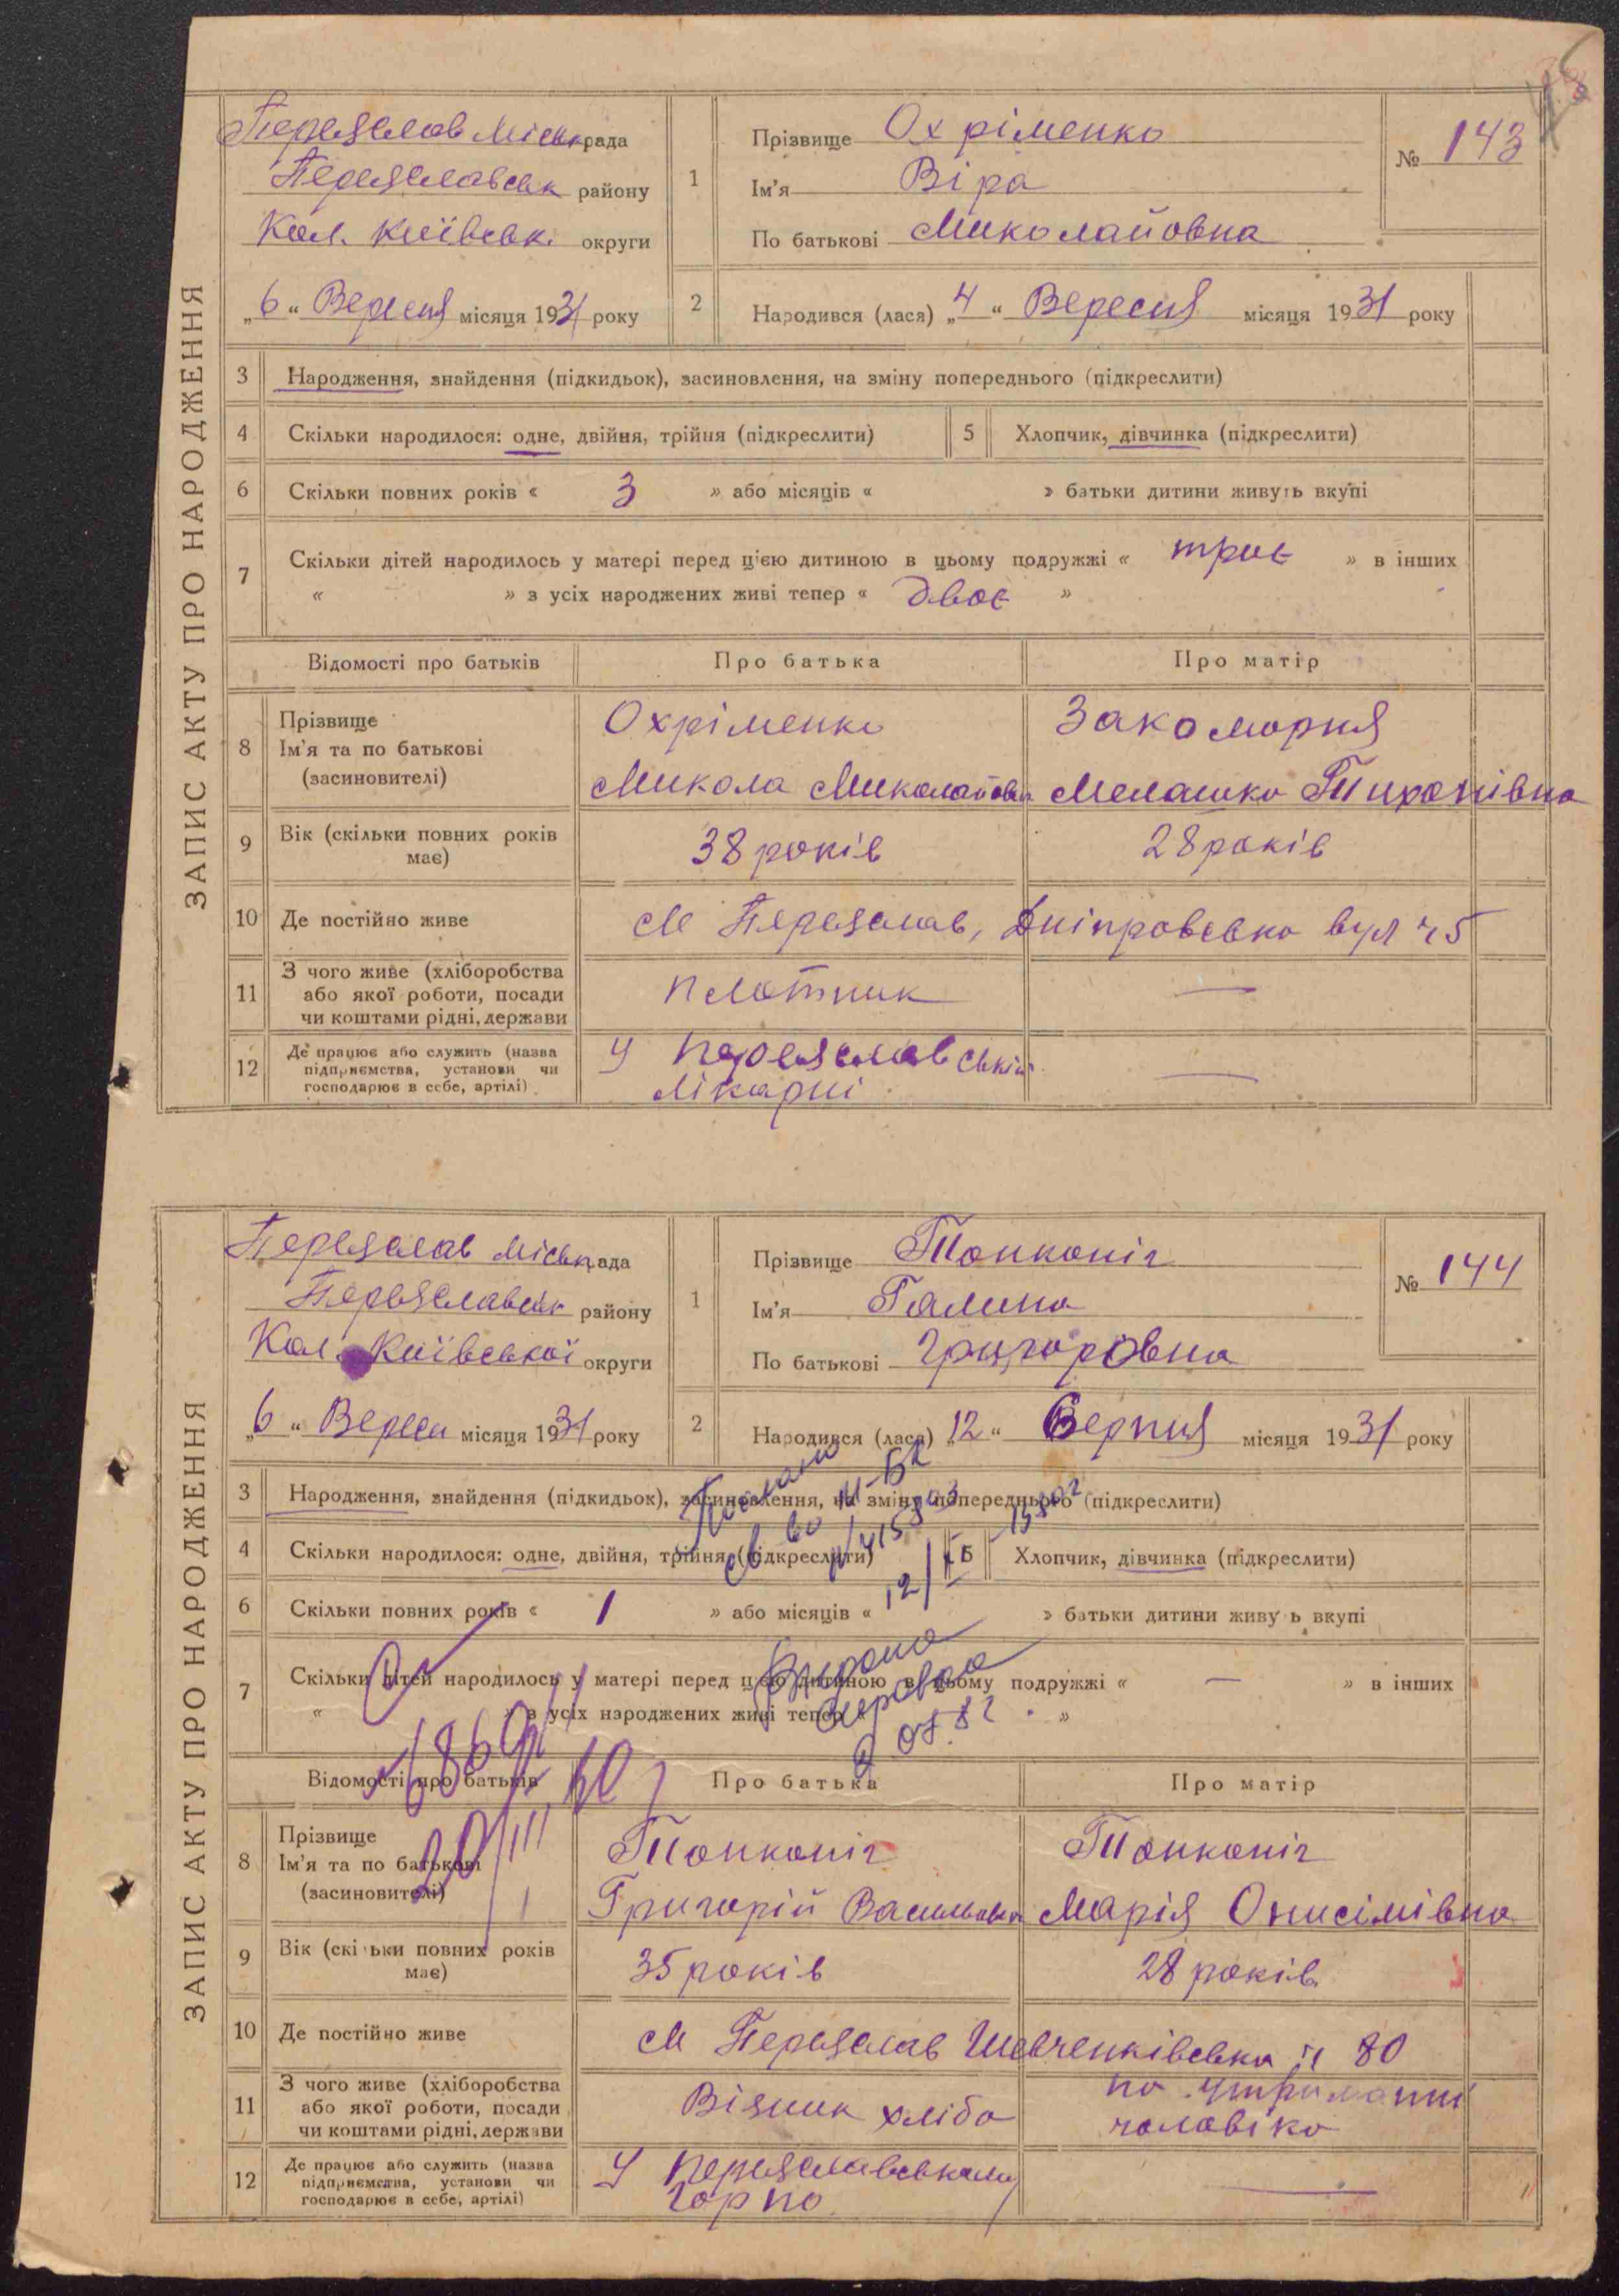 ЗАПИС АКТУ ПРО НАРОДЖЕННЯ
Переяслав Міськрада
Переяславськ району
Кол. Київськ. округи
„6“ Вересня місяця 1931 року
1 Прізвище Охріменко
Ім'я Віра
По батькові Миколайовна
№ 143
2 Народився (лася) „4“ Вересня місяця 1931 року
3 Народження, знайдення (підкидьок), засиновлення, на зміну попереднього (підкреслити)
4 Скільки народилося: одне, двійня, трійня (підкреслити) 5 Хлопчик, дівчинка (підкреслити)
6 Скільки повних років « 3 » або місяців « » батьки дитини живуть вкупі
7 Скільки дітей народилось у матері перед цією дитиною в цьому подружжі « троє » в інших
« » з усіх народжених живі тепер « двоє »
Відомості про батьків Про батька Про матір
8 Прізвище Охріменко Закоморня
Ім'я та по батькові Микола Миколайович Мелашка Тихонівна
(засиновителі)
9 Вік (скільки повних років має) 38 років 28 років
10 Де постійно живе м Переяслав, Дніпровська вул ч 5
11 З чого живе (хліборобства
або якої роботи, посади плотник —
чи коштами рідні, держави
12 Де працює або служить (назва У Переяславській
підприємства, установи чи —
господарює в себе, артілі) лікарні
ЗАПИС АКТУ ПРО НАРОДЖЕННЯ
Переяслав Міськрада
Переяславськ району
Кол. Київської округи
„6“ Вересн місяця 1931 року
1 Прізвище Тонконіг
Ім'я Галина
По батькові Григоровна
№ 144
2 Народився (лася) „12“ Серпня місяця 1931 року
3 Народження, знайдення (підкидьок), засиновлення, на зміну попереднього (підкреслити)
4 Скільки народилося: одне, двійня, трійня (підкреслити) 5 Хлопчик, дівчинка (підкреслити)
6 Скільки повних років « 1 » або місяців « » батьки дитини живу ь вкупі
7 Скільки дітей народилось у матері перед цією дитиною в цьому подружжі « — » в інших
« » з усіх народжених живі тепер « »
Відомості про батьків Про батька Про матір
8 Прізвище Тонконіг Тонконіг
Ім'я та по батькові Григорій Васильович Марія Онисімівна
(засиновителі)
20/III
9 Вік (скільки повних років має) 35 років 28 років
10 Де постійно живе м Переяслав Шевченківська ч 80
11 З чого живе (хліборобства на утриманні
або якої роботи, посади Візник хліба чоловіка
чи коштами рідні, держави
12 Де працює або служить (назва У Переяславському
підприємства, установи чи —
господарює в себе, артілі) Горпо